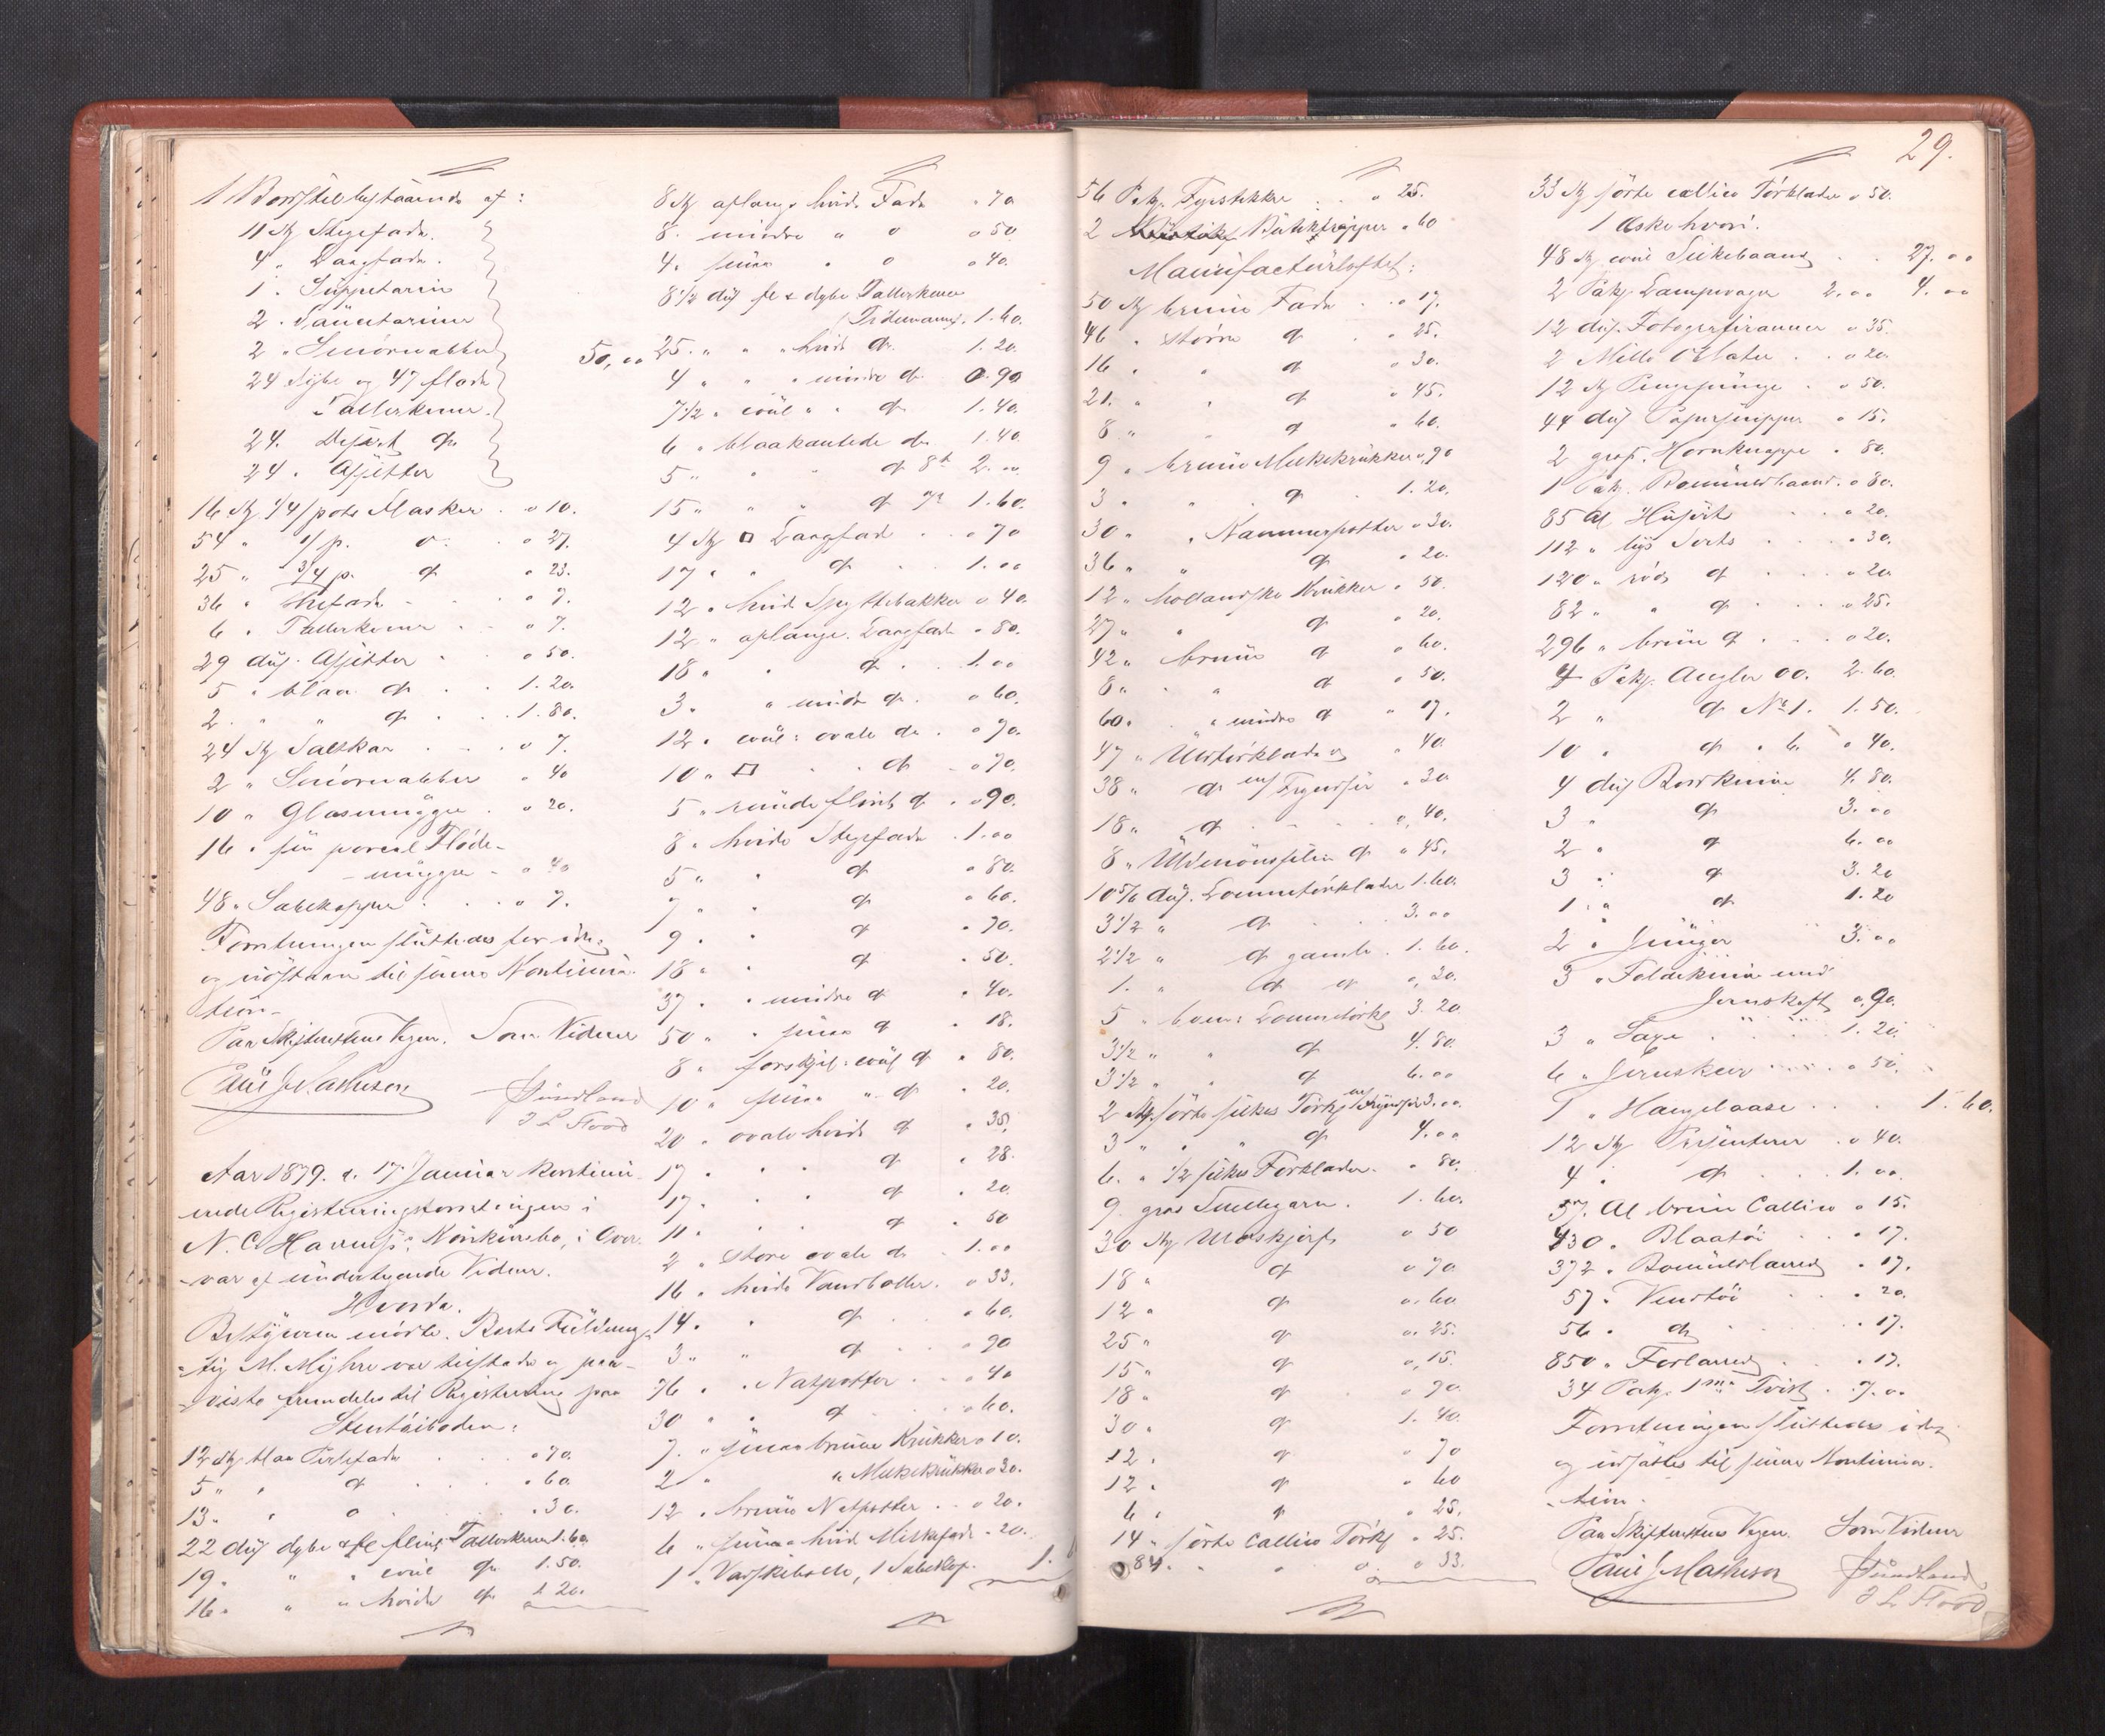 1 Bordstel bestaaende af:
11 St Stegefade.
4 " Daagfade.
1 " Suppeterin
2 " Saucetariner
2 " Smörnabber 50,00
24 dybe og 47 flade
Tallerkener.
24. Desert do
24 " Asjetter
16 St 1/4 pots Flasker " 10.
54 " 1/1 p. do " 27.
25 " 3/4 p. do " 23.
36 " Thefade " 7.
6 " Tallerkener " 7.
29 dus. Asjetter " 50.
5 " blaa do 1.20
2 " " do 1.80.
24 St Saltkar " 7.
2 " Smörnabber " 40
10 " Glasmugger " 20.
16 " smaa Fløde-
mugger " 40
48 " " 7.
Forretningen sluttedes for idag
og udsattes til senere Kontinua-
tion.
Paa Skifterettens Vegne. Som Vidner
Paul J. Matheson Sundland
J L Flood
Aar 1879. d. 17. Januar kontinu-
erede Registreringsforretningen i
N. C. i Over-
vær af undertegnede Vidner.
Hvorda.
Bestyreren mødte. Boets Fuldmæg-
tig M. Myhre var tilstede og paa-
viste fremdeles til Registrering paa
Stentøiboden:
12 St blaa " 70.
5 " " do " 60.
13 " " do " 30.
22 dus dybe & fl Tallerkener 1.60
19 " " " coul do 1.50.
16 " " " hvide do 1.20.
8 St aflange hvide Fade " 70
8 " mindre " do " 50
4 " smaa " do " 40.
8 1/2 dus fl & dybe Tallerkener
1.60.
25 " " " hvide do 1.20.
4 " " " mindre do 0.90
7 1/2 " coul " " do 1.40.
6 " blaakantede do 1.40.
5 " " " do 2.00
15 " " " do 1.60.
4 St □ Daagfad " 70
17 " " do 1.00
12 " hvide Spyttebakker " 40.
12 " aflange Daagfade " 80.
18 " " do 1.00
3 " " mindre do " 60.
12 " coul: ovale do " 70.
10 " □ " do " 70.
5 " runde do " 90.
8 " hvide Stegefade 1.00
5 " " do " 80.
7 " " do " 60.
9 " " do " 70.
18 " " do " 50.
37 " " mindre do " 40.
50 " " smaa do " 18.
8 " forskjel: coul do " 80.
10 " smaa " do " 20.
20 " ovale hvide do " 35.
17 " " " do " 28.
17 " " " do " 20.
11 " " " do " 50
2 " store ovale do 1.00
16 " hvide Vandboller " 33.
14 " " do " 60.
3 " " do " 90
76 " " Natpotter " 40
30 " " do " 60.
7 " smaa brune Krukker " 10.
2 " " Melkekrukker " 30.
12 " brune Natpotter " 20.
6 " smaa hvide Melkefade " 20.
1 " Vadskebolle, 1 Sæbekop. 1.
29.
56 Pak. Fyrstikker " 25.
2 " 60
Manufacturloftet:
50 St brune Fade " 17.
46 " større do " 25.
16 " " do " 30.
21 " " do " 45.
8 " " do " 60.
9 " brune Melkekrukker " 90
3 " " do 1.20.
30 " " Kammerpotter " 30.
36 " " do " 20.
12 " hollandske Krukker " 50.
27 " " do " 20.
42 " brune do " 60.
8 " " do " 50.
60 " " mindre do " 17.
47 " Uldtørklæder " 40.
38 " do m/ Fryndser " 30
18 " do " 40.
8 " do " 45.
10 5/6 dus. Lommetørklæder 1.60.
3 1/2 " do 3.00
2 1/2 " do gamle 1.60.
1 " do do " 20.
5 " bom: Lommetørkl 3.20
3 1/2 " " do 4.80.
3 1/2 " " do 6.00
2 St sorte silkes Tørkl m/ Fryndser 3.00.
3 " " " do 4.00
6 " 1/2 silkes Tørklæder " 80.
9 gros Snellegarn 1.60.
30 St Uldskjærf " 50
18 " do " 70
12 " do " 60
25 " do " 25.
15 " do " 15.
18 " do " 90.
30 " do 1.40.
12 " do " 70
12 " do " 60
6 " do " 25.
14 " sorte callico Tørkl " 25.
84 " " do " 33.
33 St sorte callico Tørklæder " 50.
1 Æske hvori:
48 St coul Silkebaand 27.00
2 Pak Lampevæger 2.00 4.00
12 dus. Fotografirammer " 35.
2 Mille Oblater " 20
12 St Pengepunge " 50.
44 dus Papirsnipper " 15.
2 gros. Hornknapper " 80.
1 Pak. Bomuldsbaand " 80.
85 Al " 20.
112 " lys Sirts " 30.
120 " rød do " 20
82 " " do " 25.
296 " brun do " 20.
4 Pak. Angler 00. 2.60
2 " do No 1. 1.50.
10 " do " 6 " 40.
4 dus Bordknive 4.80.
3 " do 3.00
2 " do 6.00
3 " do 3.20
1 " do 1.20
2 " 3.00
3 " Foldeknive med
Jernskaft " 90.
3 " Saxe 1.20.
6 " Jernskeer " 50.
1 " Hængelaase 1.60.
12 St " 40.
4 " do 1.00.
57 Al brun Callico " 15.
430 " Blaatøi " 17.
372 " Bomuldslærred " 17.
57 " Vendtøi " 20.
56 " do " 17.
850 " Forlærred " 17.
34 Pak. 1ma Tvist 7.00
Forretningen sluttedes idag
og udsattes til senere Kontinua-
tion.
Paa Skifterettens Vegne. Som Vidner
Paul J Matheson Sundland
J L Flood